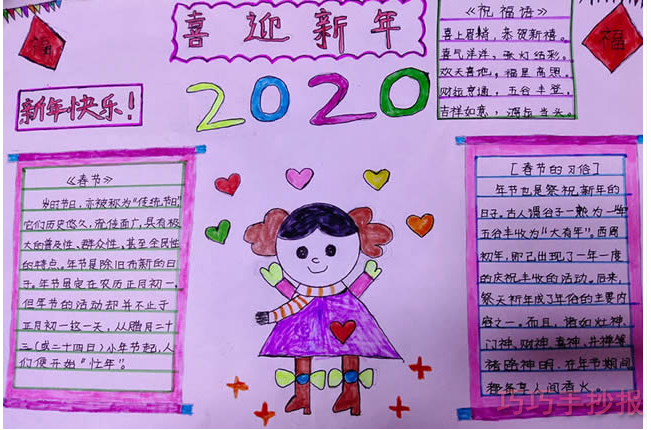 喜迎新年
福
福
新年快乐!
2020
《祝福语》
喜上眉梢，恭贺新禧。
喜气洋洋，张灯结彩。
欢天喜地，福星高照。
财运亨通，五谷丰登。
吉祥如意，鸿运当头。
《春节》
岁时节日，亦被称为“传统节日”。
它们历史悠久，流传面广，具有极
大的普及性、群众性、甚至全民性
的特点。年节是除旧布新的日
子。年节虽定在农历正月初一，
但年节的活动却并不止于
正月初一这一天，从腊月二十
三（或二十四日）小年节起，人
们便开始“忙年”。
[春节的习俗]
年节也是祭祝新年的
日子。古人谓谷子一熟为一“年”
五谷丰收为“大有年”。西周
初年，即已出现了一年一度
的庆祝丰收的活动。后来，
祭天祈年成了年俗的主要内
容之一。而且，诸如灶神、
门神、财神、喜神、井神等
诸路神明，在年节期间
都备享人间香火。
巧巧手抄报